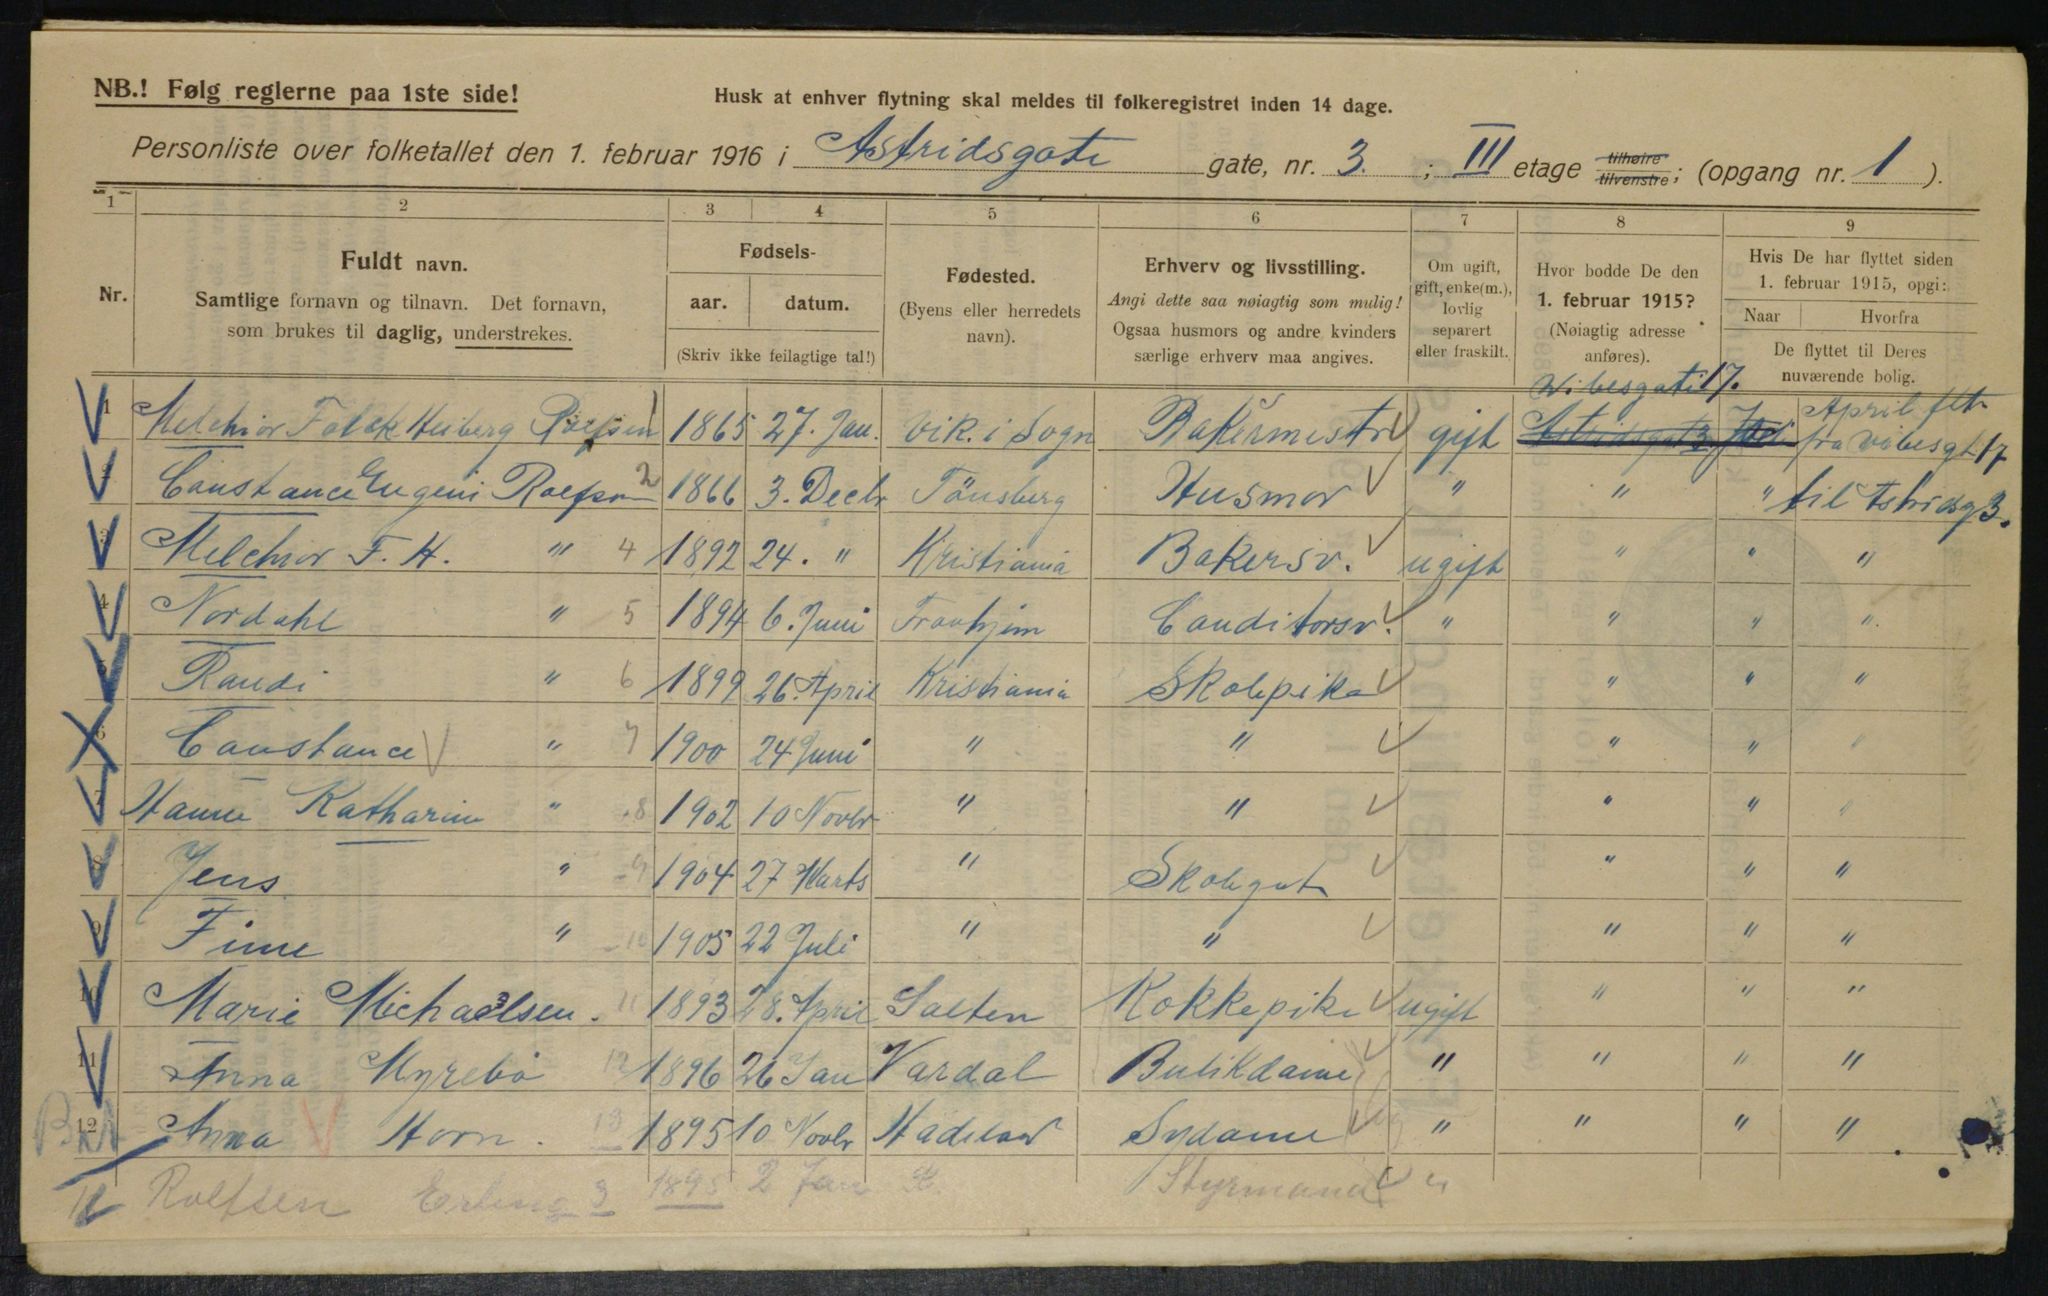 NB.! Følg reglerne paa 1ste side!
Husk at enhver flytning skal meldes til folkeregistret inden 14 dage.
Personliste over folketallet den 1. februar 1916 i Astridsgate gate, nr. 3. ; III etage tilhøire tilvenstre; (opgang nr. 1 ).
1 2 3 4 5 6 7 8 9
Nr.
Fuldt navn.
Samtlige fornavn og tilnavn. Det fornavn,
som brukes til daglig, understrekes.
Fødsels-
aar. datum.
(Skriv ikke feilagtige tal!)
Fødested.
(Byens eller herredets
navn).
Erhverv og livsstilling.
Angi dette saa nøiagtig som mulig!
Ogsaa husmors og andre kvinders
særlige erhverv maa angives.
Om ugift,
gift, enke(m.),
lovlig
separert
eller fraskilt.
Hvor bodde De den
1. februar 1915?
(Nøiagtig adresse
anføres).
Hvis De har flyttet siden
1. februar 1915, opgi:
Naar Hvorfra
De flyttet til Deres
nuværende bolig.
Vibesgate 17.
1 Melchior Falck Heiberg Rolfsen 1 1865 27. Jan. Vik. i Sogn Bakermestr gift Astridsgat 3 April flt. fra Vibesgt 17
2 Constance Eugeni Rolfsen 2 1866 3. Decbr Tönsberg Husmor " " " til Astridsg 3.
3 Melchior F. H. " 4 1892 24. " Kristiania Bakersv. ugift " " "
4 Nordahl " 5 1894 6. Juni Tronhjem Conditorsv. " " " "
5 Randi " 6 1899 26. April Kristiania Skolepike " " "
6 Constance " 7 1900 24 Juni " " " " "
7 Hanne Katharine " 8 1902 10 Novbr " " " " "
8 Jens " 9 1904 27 Marts " Skolegut " " "
9 Finne " 10 1905 22 Juli " " " " "
10 Marie Michaelsen. 11 1893 28. April Salten Kokkepike ugift " " "
11 Anna Myrebö 12 1896 26 Jan Vardal Butikdame " " " "
12 Anna Horn. 13 1895 10 Novbr Hadeland Sydame " " " "
Rolfsen Erling 3 1895 2 Jan K. Styrmand "